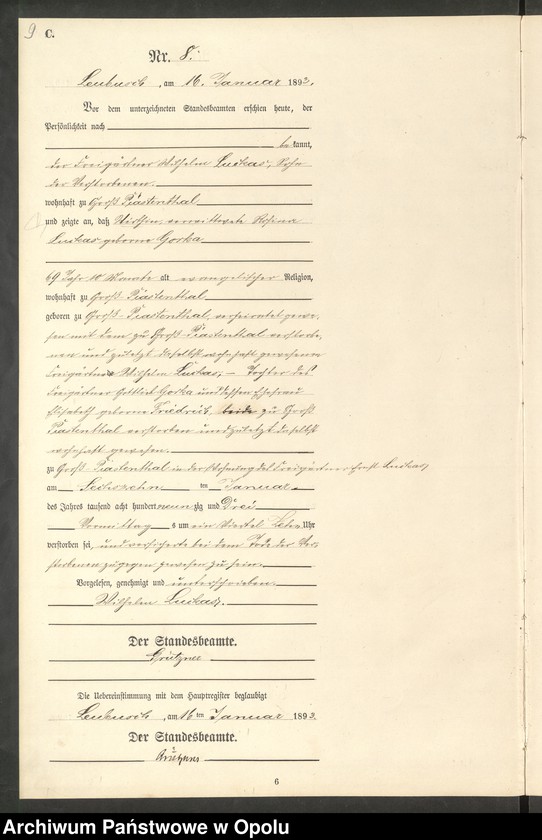 9 C.
Nr. 8.
Leubusch, am 16. Januar 1893.
Vor dem unterzeichneten Standesbeamten erschien heute, der
Persönlichkeit nach
bekannt,
der Freigärtner Wilhelm Luckas, Sohn
der Verstorbenen.
wohnhaft zu Groß Piastenthal
und zeigte an, daß verwittwete Rosina
Luckas geborne Gorka
69 Jahr 10 Monate alt evangelischer Religion,
wohnhaft zu Groß Piastenthal
geboren zu Groß-Piastenthal, verheirathet gewe-
sen mit dem zu Groß-Piastenthal verstorbe-
nen und zuletzt daselbst wohnhaft gewesenen
Freigärtner Wilhelm Luckas, – Tochter des
Freigärtner Gottlieb Gorka und dessen Ehefrau
Elisabeth geborne Friedrich beide zu Groß
Piastenthal verstorben und zuletzt daselbst
wohnhaft gewesen.
zu Groß-Piastenthal in der Wohnung des Freigärtner Luckas,
am Sechszehn ten Januar
des Jahres tausend acht hundert neunzig und Drei
Vormittags um ein Viertel Zehn Uhr
verstorben sei, und versicherte bei dem Tode der Ver-
storbenen zugegen gewesen zu sein.
Vorgelesen, genehmigt und unterschrieben.
Wilhelm Luckas.
Der Standesbeamte.
Grützner
Die Uebereinstimmung mit dem Hauptregister beglaubigt
Leubusch, am 16 ten Januar 1893.
Der Standesbeamte.
Grützner
6
Archiwum Państwowe w Opolu